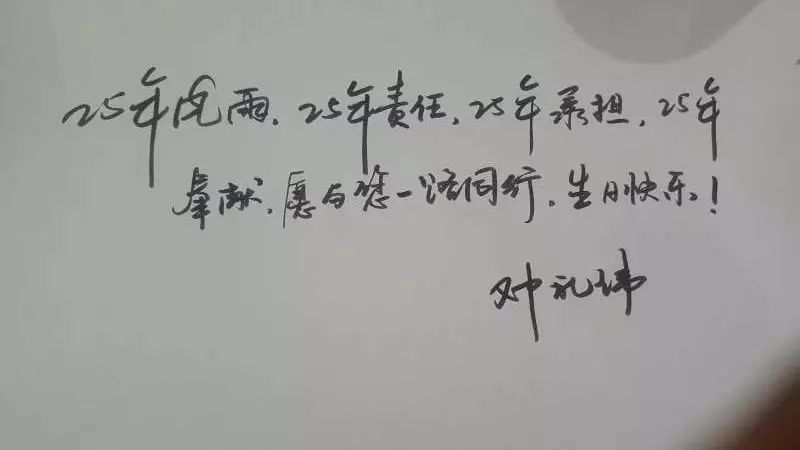 25年风雨，25年责任，25年承担，25年
奉献，愿与您一路同行。生日快乐！
礼玮